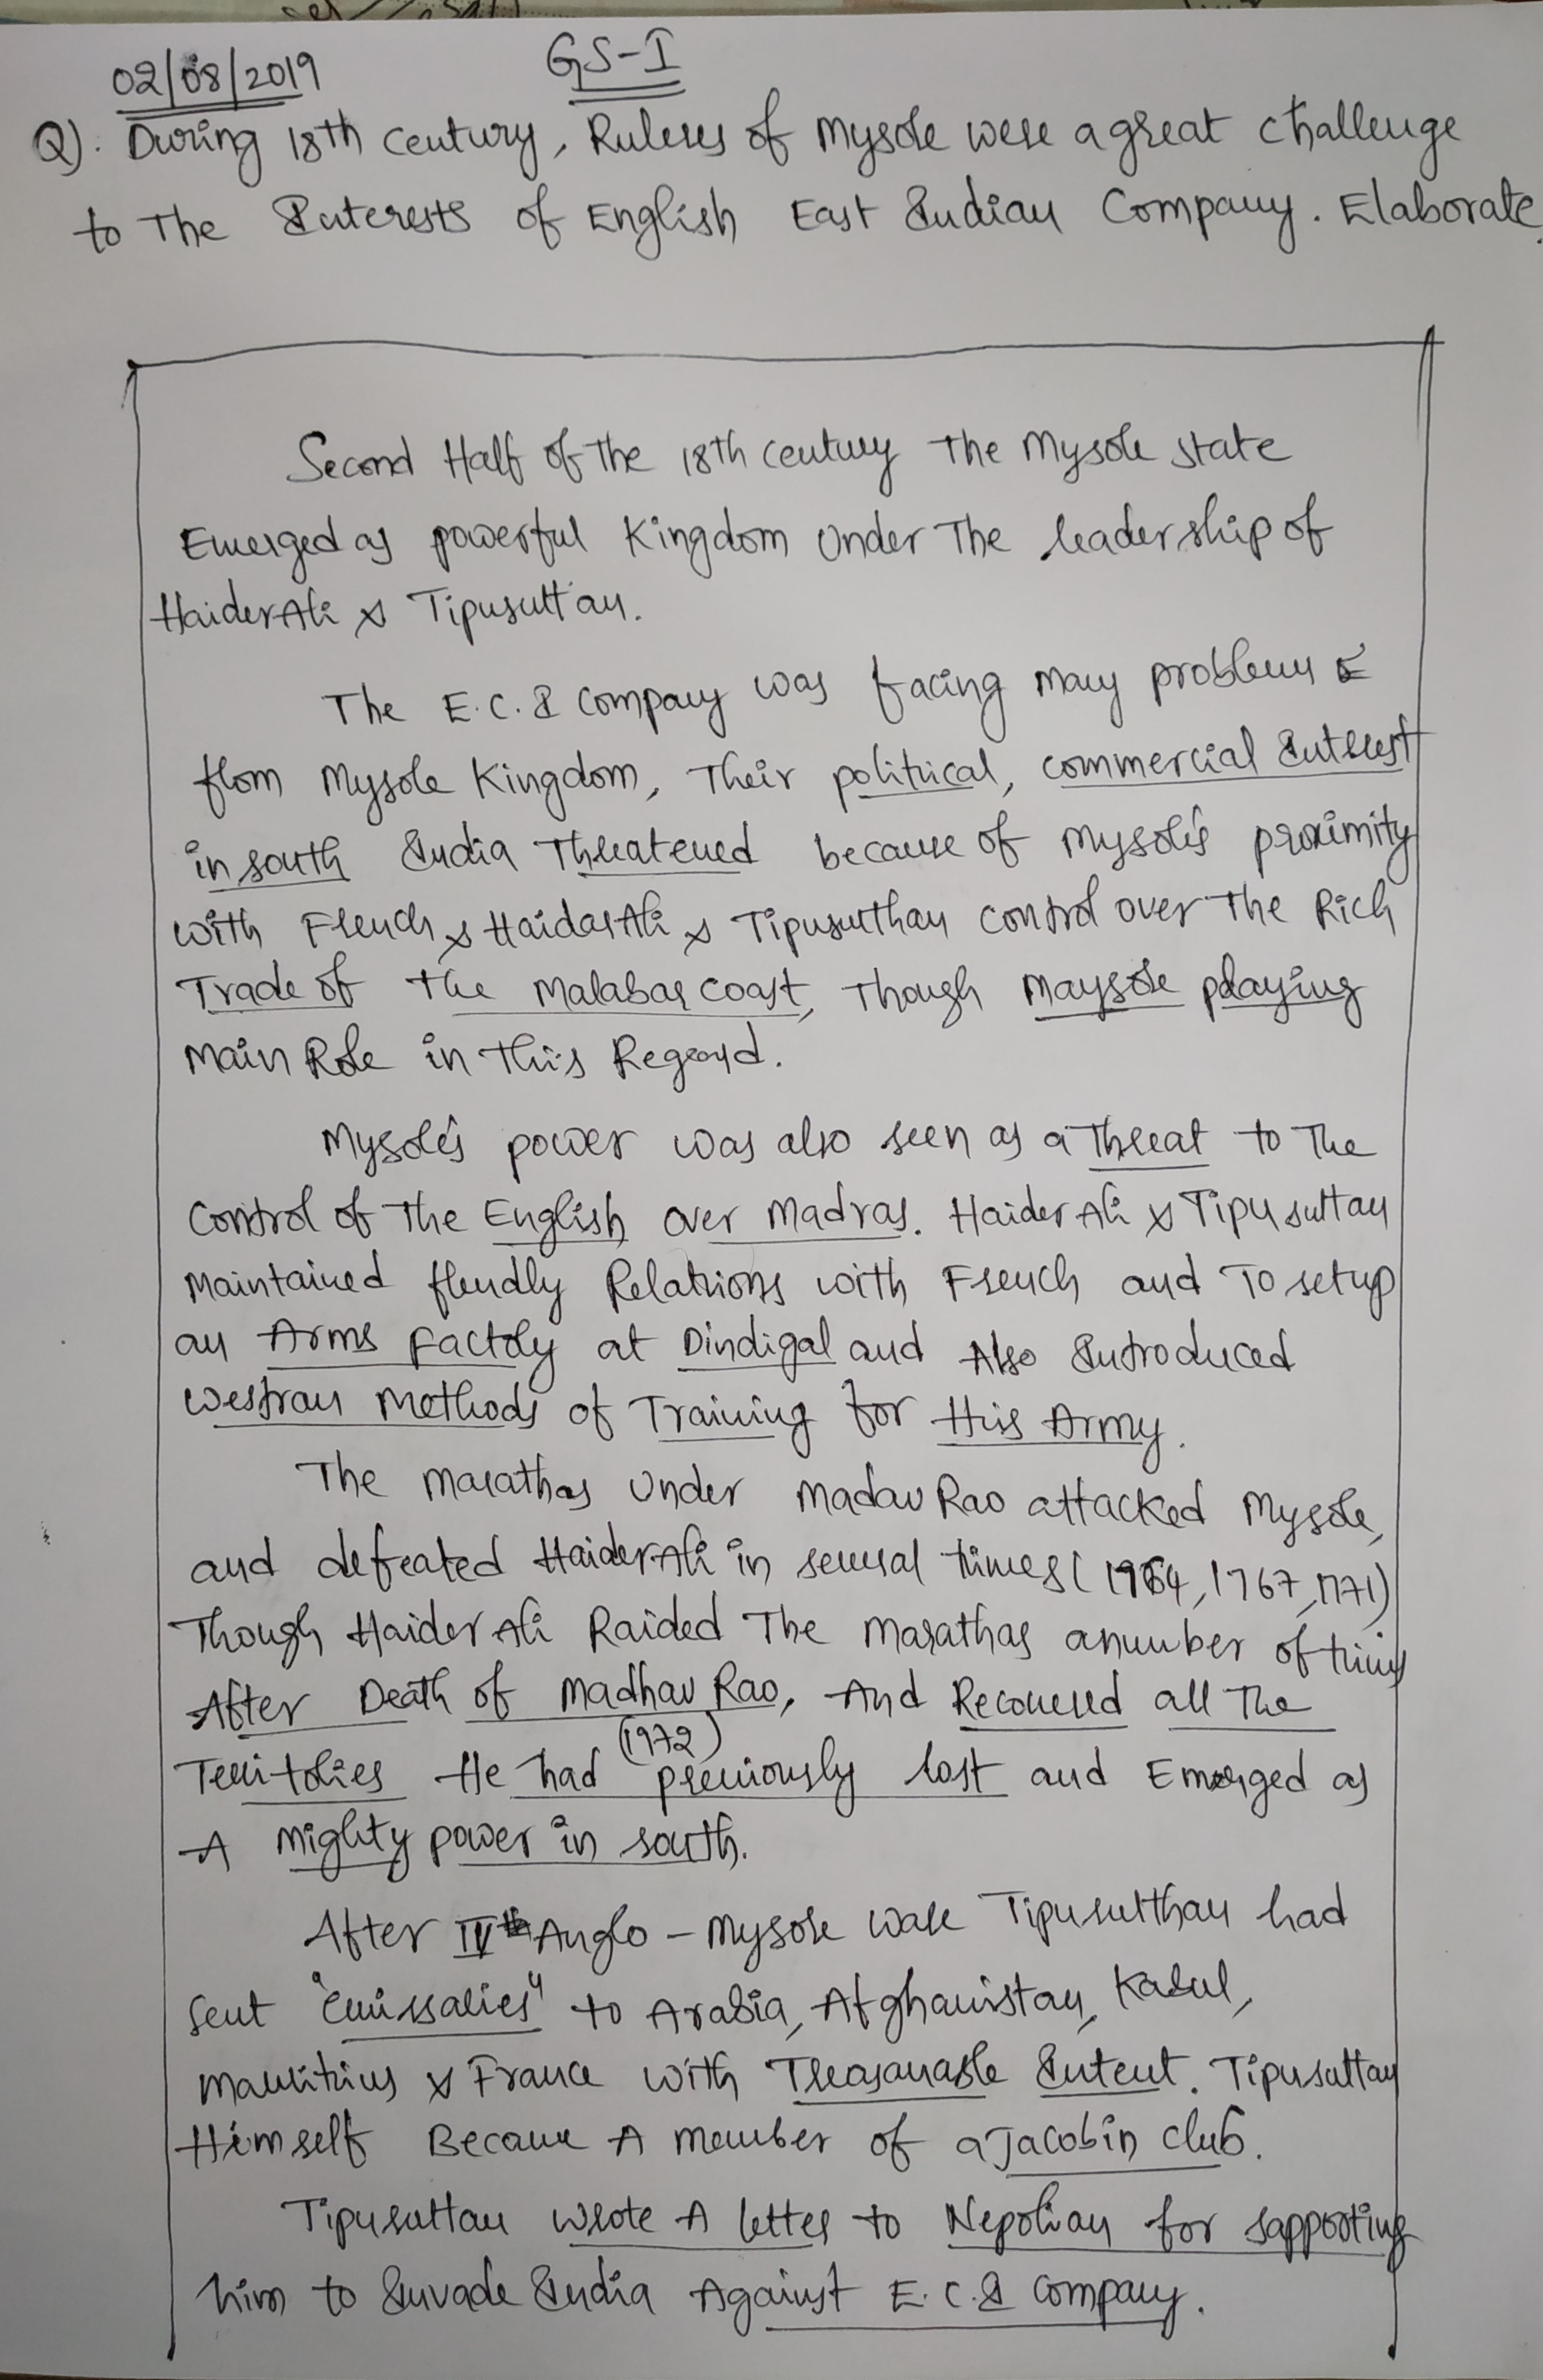 02/08/2019
GS-I
Q). During 18th century, Rulers of Mysore were a great challenge
to The Interests of English East Indian Company. Elaborate.
Second Half of the 18th century The Mysore state
Emerged as powerful Kingdom Under The leadership of
Haider Ali & Tipusultan.
The E.C.I Company was facing many problems
from Mysore Kingdom, Their political, commercial Interest
in south India Threatened because of Mysore's proximity
with French & Haidar Ali & Tipusulthan control over The Rich
Trade of the Malabar coast, Though Maysore playing
Main Role in this Regard.
Mysore's power was also seen as a Threat to The
Control of The English over Madras. Haider Ali & Tipu sultan
Maintained frendly Relations with French and To setup
an Arms Factory at Dindigal and Also Introduced
Westran Methods of Training for His Army.
The Marathas Under Madav Rao attacked Mysore,
and defeated Haider Ali in several times (1764, 1767, 1771)
Though Haider Ali Raided The Marathas anumber of times
After Death of Madhav Rao, And Recovered all The
(1972)
Territories He had previously lost and Emerged as
A mighty power in south.
After IVth Anglo - Mysore ware Tipusulthan had
sent "emissaries" to Arabia, Afghanistan, Kabul,
Mauritius & France with Treasanable Intent. Tipusultan
Himself Became A member of a Jacobin club.
Tipusultan wrote A letter to Nepolian for sapporting
him to Invade India Against E.C.I Company.